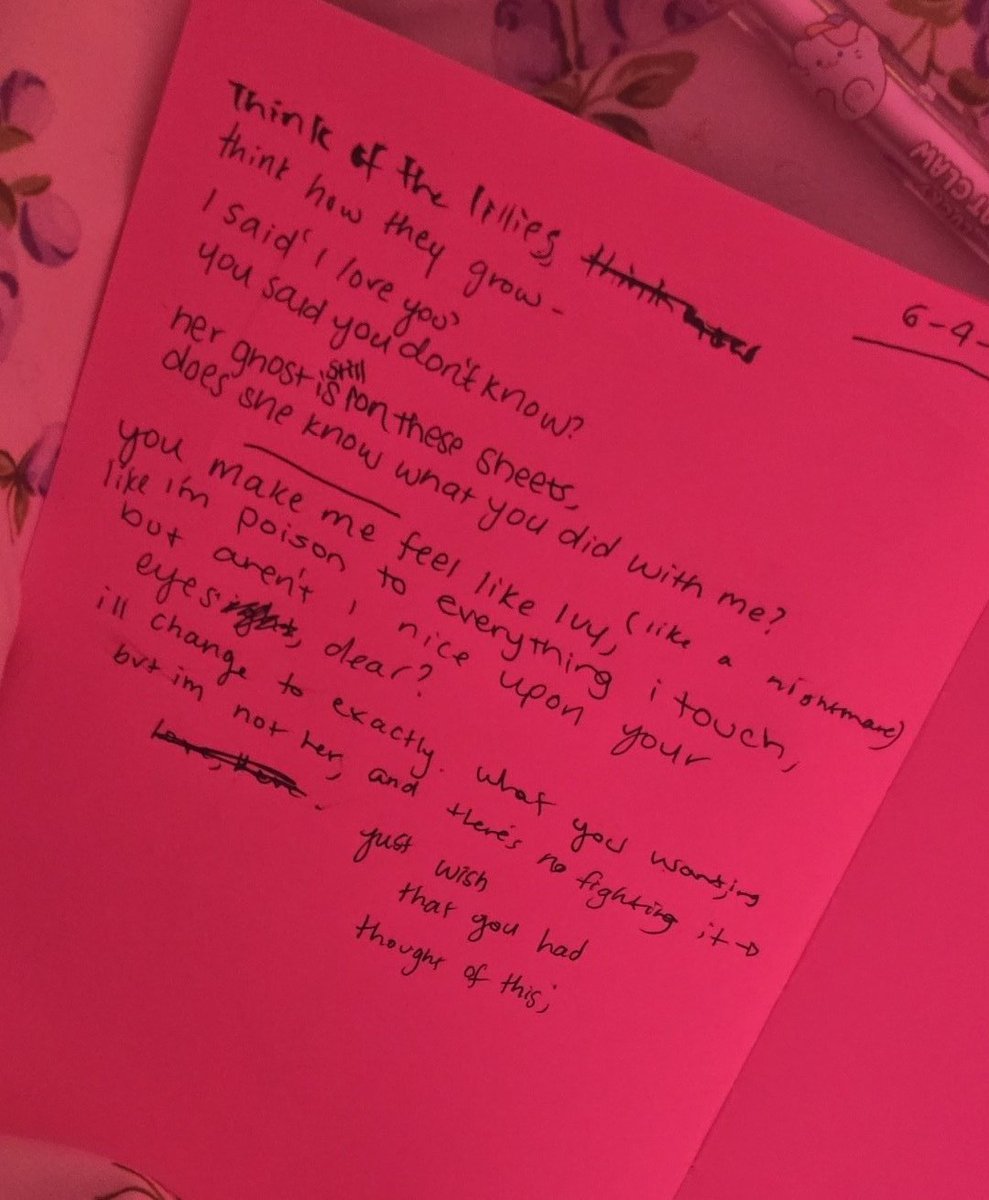 Think of the lillies, think how
think how they grow -
I said "I love you"
you said you don't know?
her ghost is still on these sheets,
does she know what you did with me?
you make me feel like Ivy, (like a nightmare)
like i'm poison to everything i touch,
but aren't i nice upon your
eyes, dear?
ill change to exactly what you wanting
but im not her, and there's no fighting it →
just wish
that you had
thought of this;
6-4-
CLAW